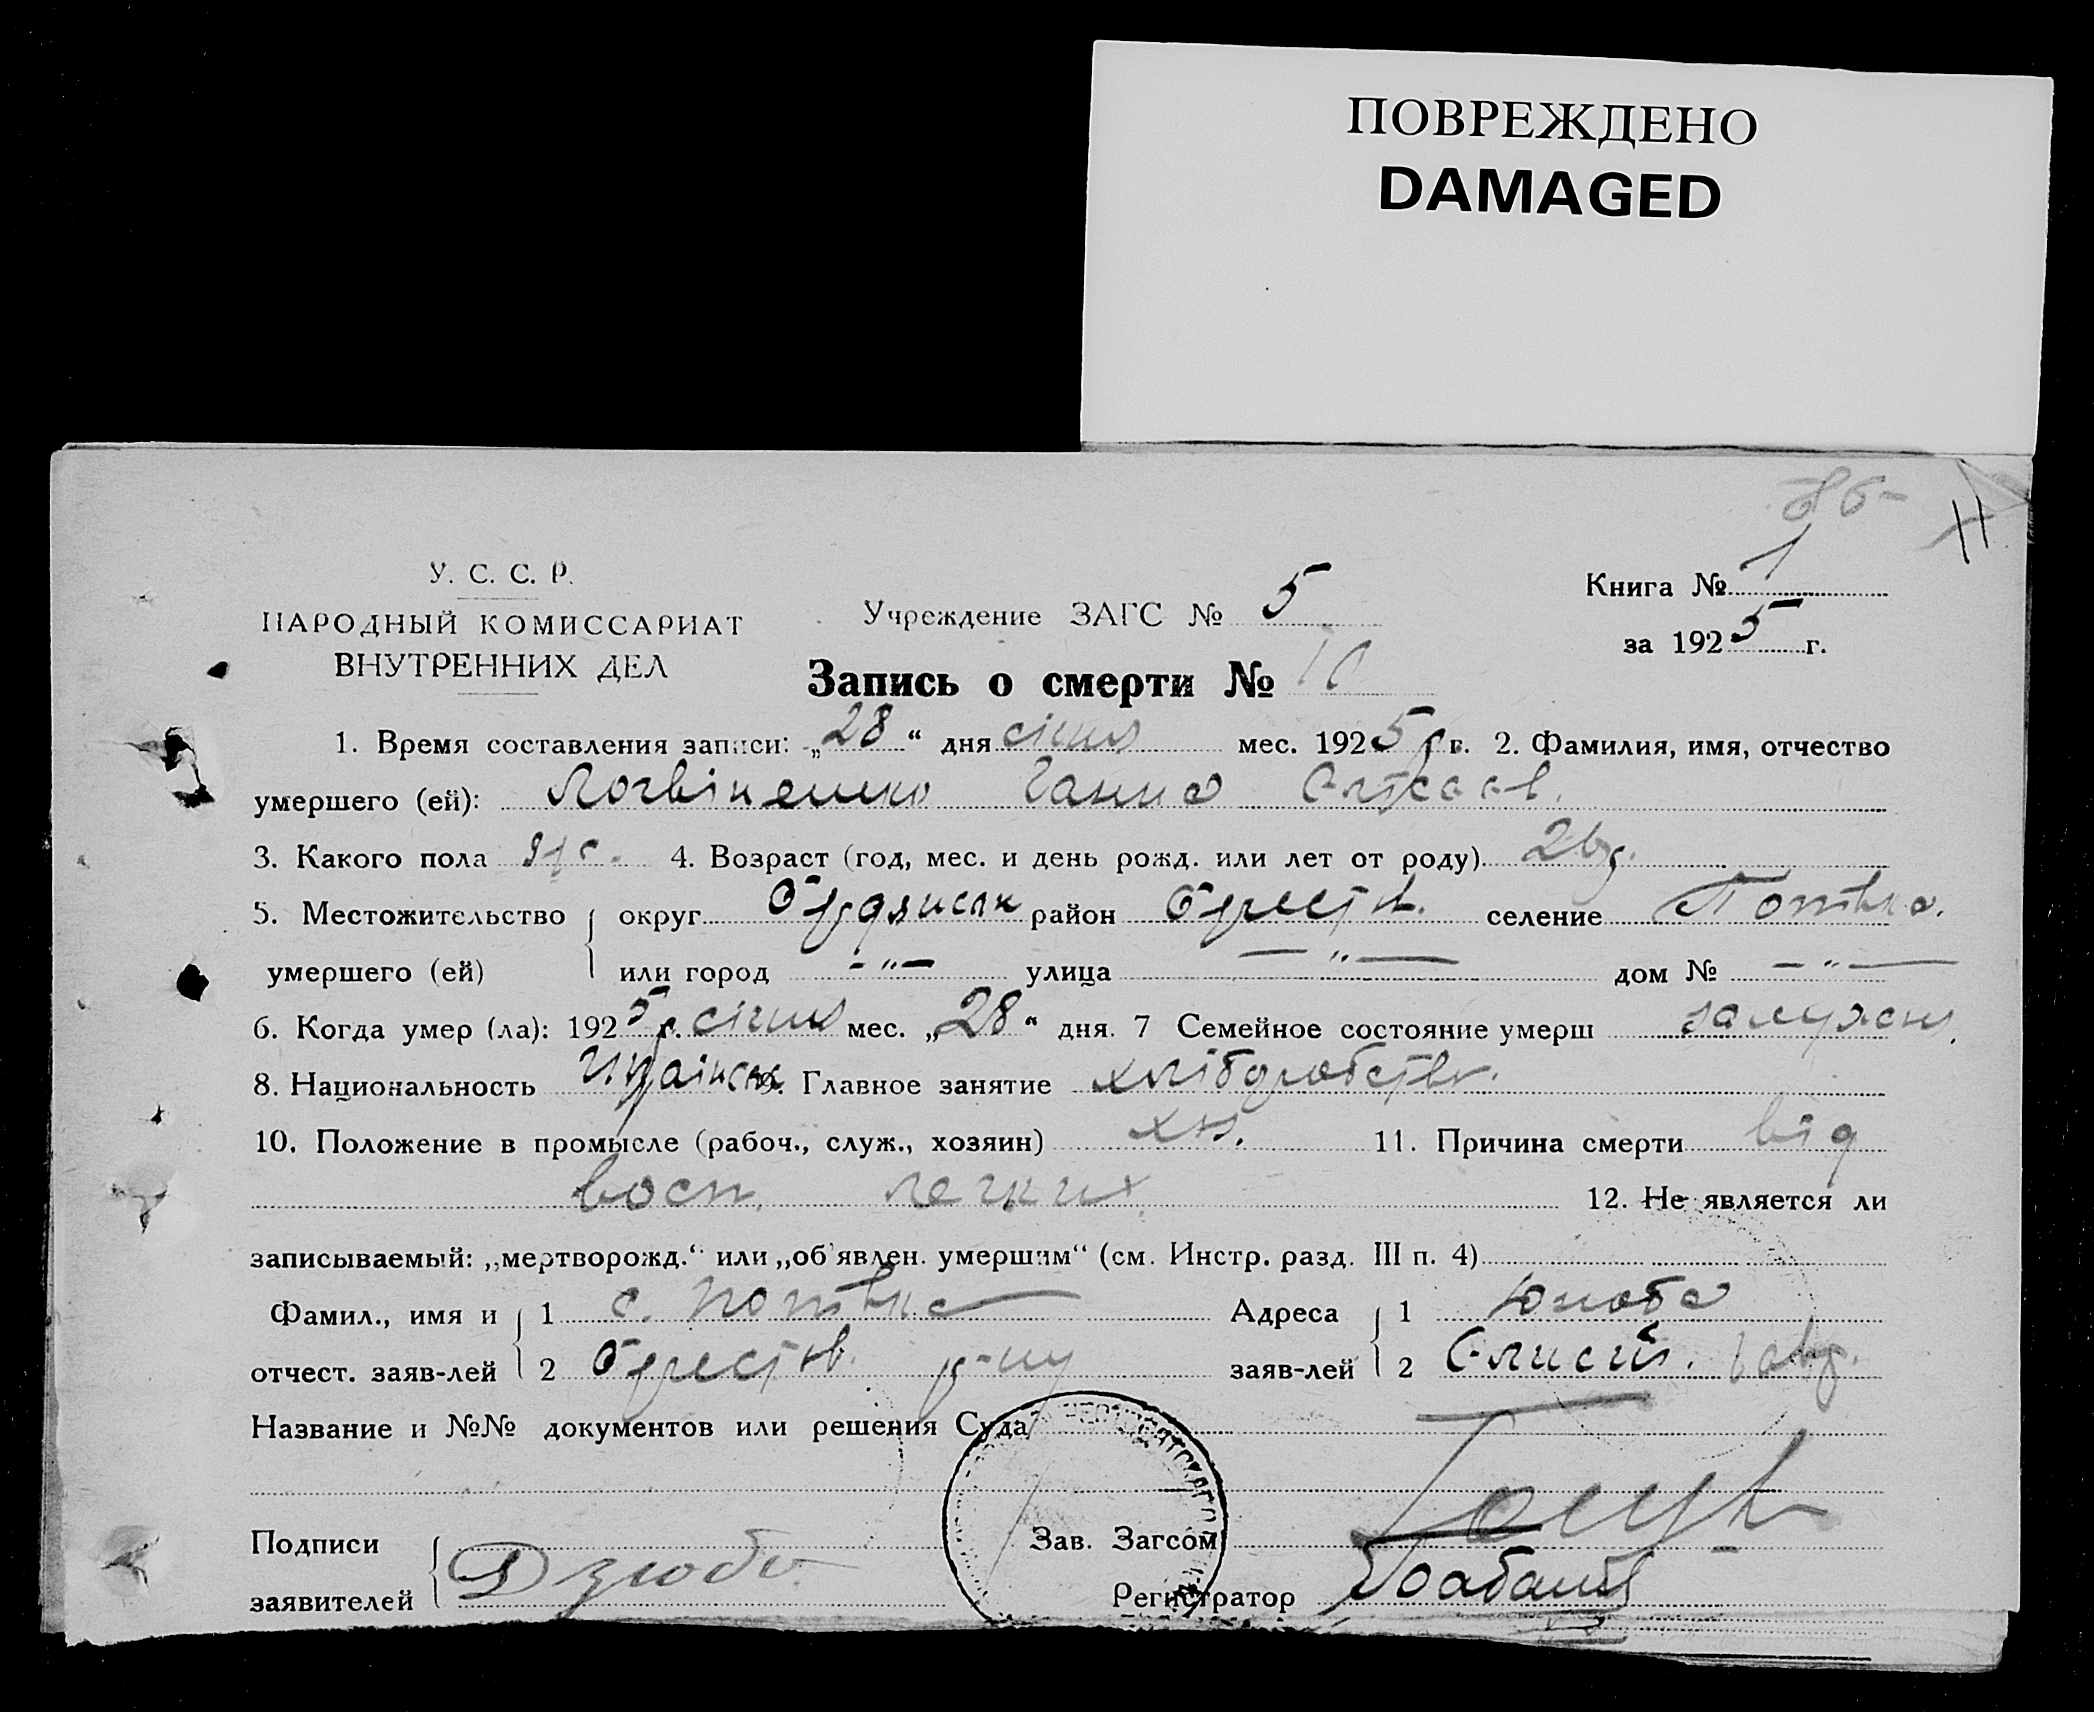 ПОВРЕЖДЕНО
DAMAGED
11
У. С. С. Р.
НАРОДНЫЙ КОМИССАРИАТ
ВНУТРЕННИХ ДЕЛ
Учреждение ЗАГС № 5
Книга № 1
за 1925 г.
Запись о смерти № 10
1. Время составления записи: „28“ дня січня мес. 1925 г. 2. Фамилия, имя, отчество
умершего (ей): Логвіненко Ганна
3. Какого пола 4. Возраст (год, мес. и день рожд. или лет от роду)
5. Местожительство округ район селение Потвка.
умершего (ей) или город - „ - улица — „ — дом № - „ —
6. Когда умер (ла): 1925 г. січня мес. „28“ дня. 7 Семейное состояние умерш замужня.
8. Национальность 9. Главное занятие хліборобство.
10. Положение в промысле (рабоч., служ., хозяин) 11. Причина смерти від
восп. легких 12. Не является ли
записываемый: „мертворожд.“ или „об'явлен. умершим“ (см. Инстр. разд. III п. 4)
Фамил., имя и 1 с. Потвка Адреса 1
отчест. заяв-лей 2 р-ну заяв-лей 2
Название и №№ документов или решения Суда
Подписи Зав. Загсом
заявителей Дзюба Регистратор